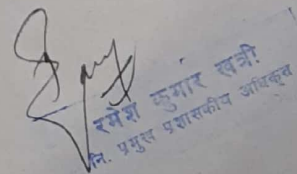 रमेश कुमार खत्री
नि. प्रमुख प्रशासकीय अधिकृत